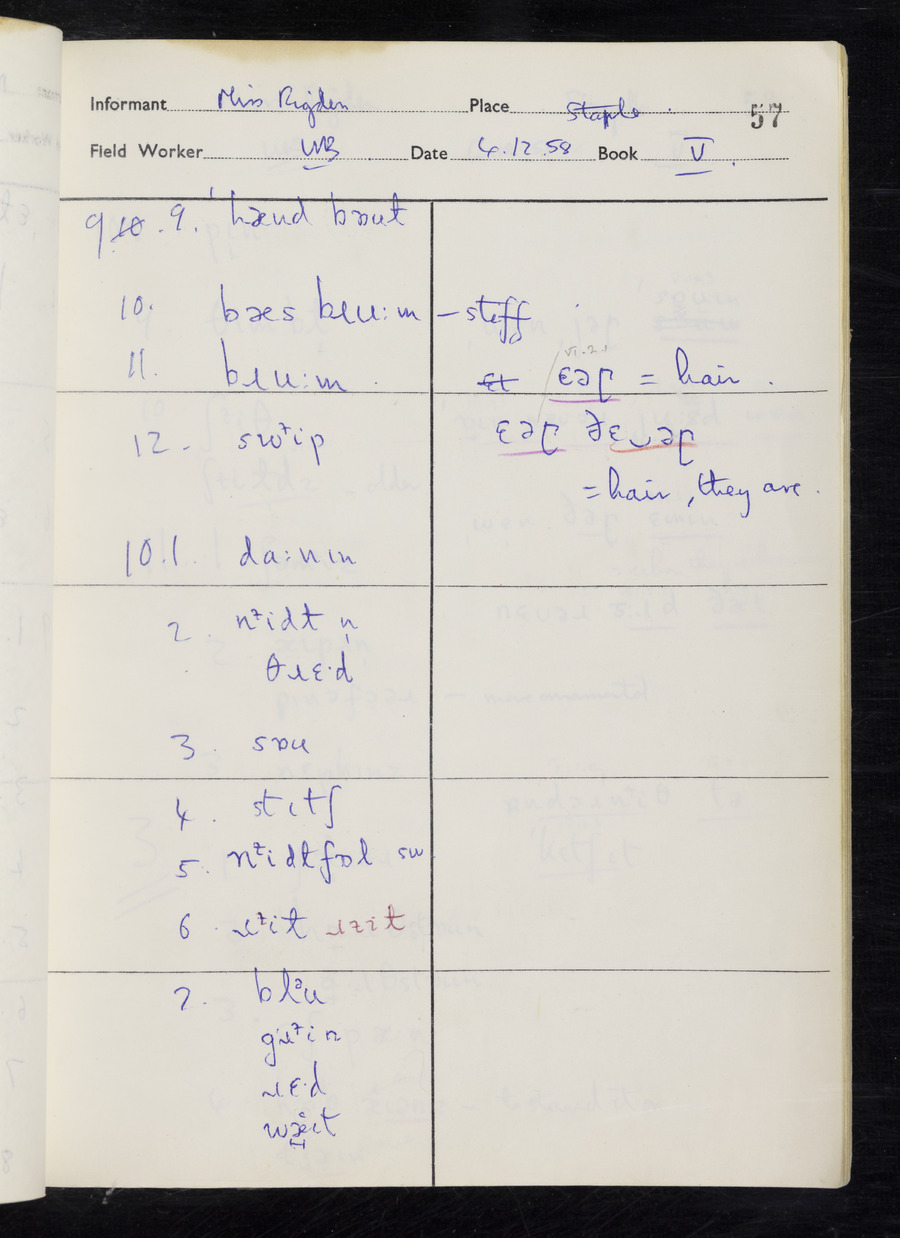 Informant Miss Rigden Place Staple 57
Field Worker WB Date 4.12.58 Book V
9 10. 9. hænd bɹɒut
10. bæs bɹuːm – stiff
11. bɹuːm
VI.2.1
ɛt ɛəɹ = hair .
12. swᶦip
ɛəɹ ðɛ‿əɹ
= hair, they are.
10.1. daːnɪn
2. nᶦidt n̩
θɹɛˑd
3. sɒu
4. stɪtʃ
5. nᶦidtfɒl sw
6. ɹᶦit ɹɪit
7. blᵊu
gɹᶦin
ɹɛˑd
wæit